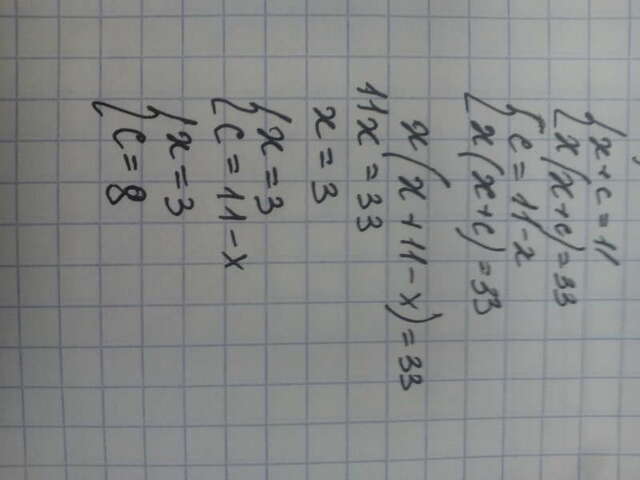 {x+c=11
{x(x+c)=33
{c=11-x
{x(x+c)=33
x(x+11-x)=33
11x=33
x=3
{x=3
{c=11-x
{x=3
{c=8